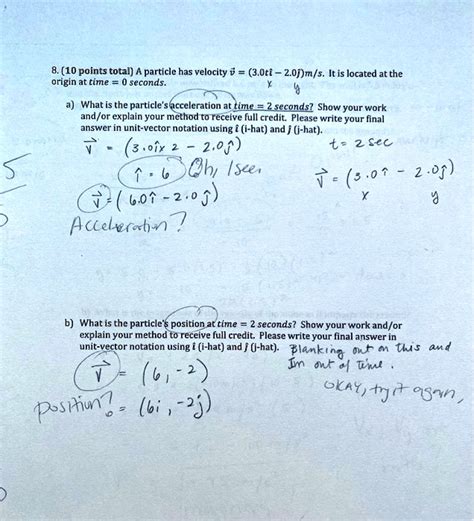 8. (10 points total) A particle has velocity v⃗ = (3.0tî − 2.0ĵ)m/s. It is located at the
origin at time = 0 seconds.
x y
a) What is the particle's acceleration at time = 2 seconds? Show your work
and/or explain your method to receive full credit. Please write your final
answer in unit-vector notation using î (i-hat) and ĵ (j-hat).
v⃗ = (3.0î x 2 − 2.0ĵ)
t = 2 sec
î = 6
Oh, I see
v⃗ = (3.0î − 2.0ĵ)
x y
5
v⃗ = (6.0î − 2.0ĵ)
Acceleration?
b) What is the particle's position at time = 2 seconds? Show your work and/or
explain your method to receive full credit. Please write your final answer in
unit-vector notation using î (i-hat) and ĵ (j-hat).
Blanking out on this and
Im out of time.
v⃗ = (6, -2)
OKAY, try it again,
position? = (6i, -2j)